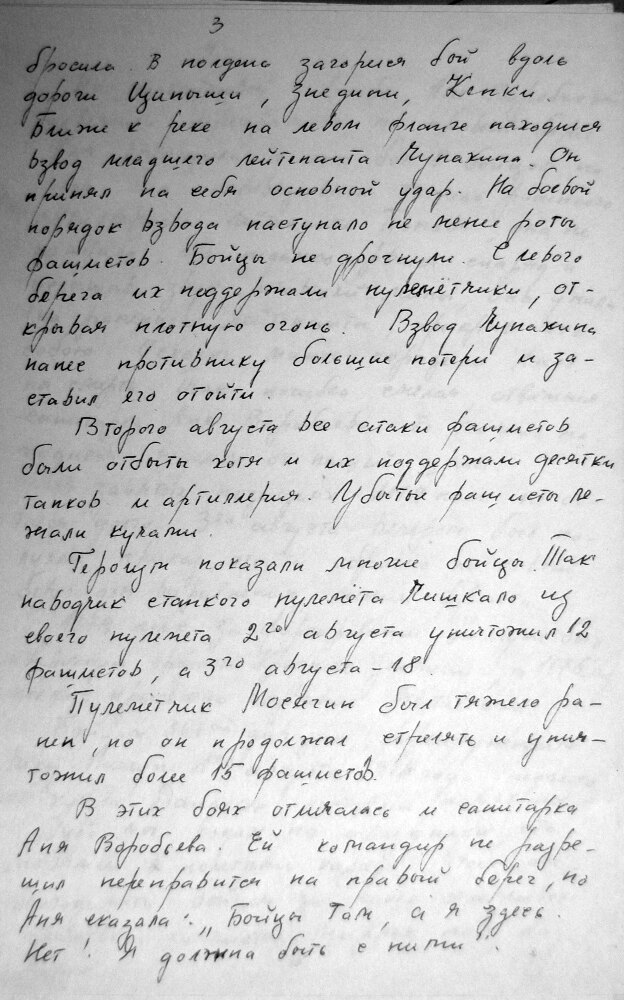 3
бросила. В полдень загорелся бой вдоль
дороги Щипыши, Знедичи, Кепки.
Ближе к реке на левом фланге находился
взвод младшего лейтенанта Чупахина. Он
принял на себя основной удар. На боевой
порядок взвода наступало не менее роты
фашистов. Бойцы не дрогнули. С левого
берега их поддержали пулемётчики, от-
крывая плотную огонь. Взвод Чупахина
нанес противнику большие потери и за-
ставил его отойти
Второго августа все атаки фашистов
были отбиты хотя и их поддержали десятки
танков и артиллерия. Убитые фашисты ле-
жали кучами.
Героизм показали многие бойцы. Так
наводчик станкого пулемёта Чишкало из
своего пулемета 2го августа уничтожил 12
фашистов, а 3го августа – 18.
Пулемётчик Мосягин был тяжело ра-
нен, но он продолжал стрелять и унич-
тожил более 15 фашистов.
В этих боях отличалась и санитарка
Аня Воробьева. Ей командир не разре-
шил переправится на правый берег, но
Аня сказала: „Бойцы там, а я здесь.
Нет! Я должна быть с ними".